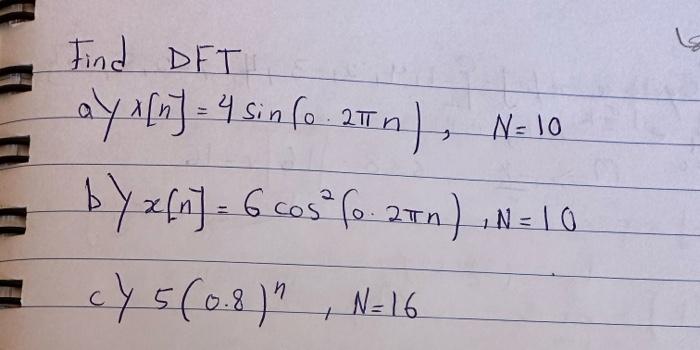 Find DFT
a) x[n] = 4 sin(0.2πn), N=10
b) x[n] = 6 cos²(0.2πn), N=10
c) 5(0.8)ⁿ, N=16